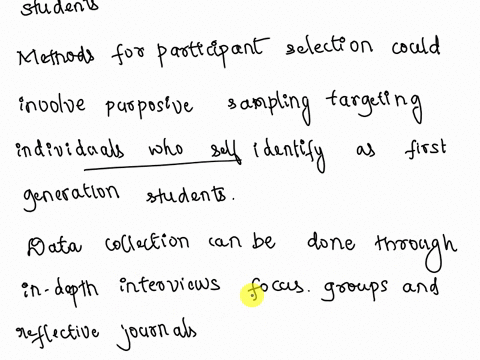 students
Methods for participant selection could
involve purposive sampling targeting
individuals who self identify as first
generation students.
Data collection can be done through
in-depth interviews focus. groups and
reflective journals